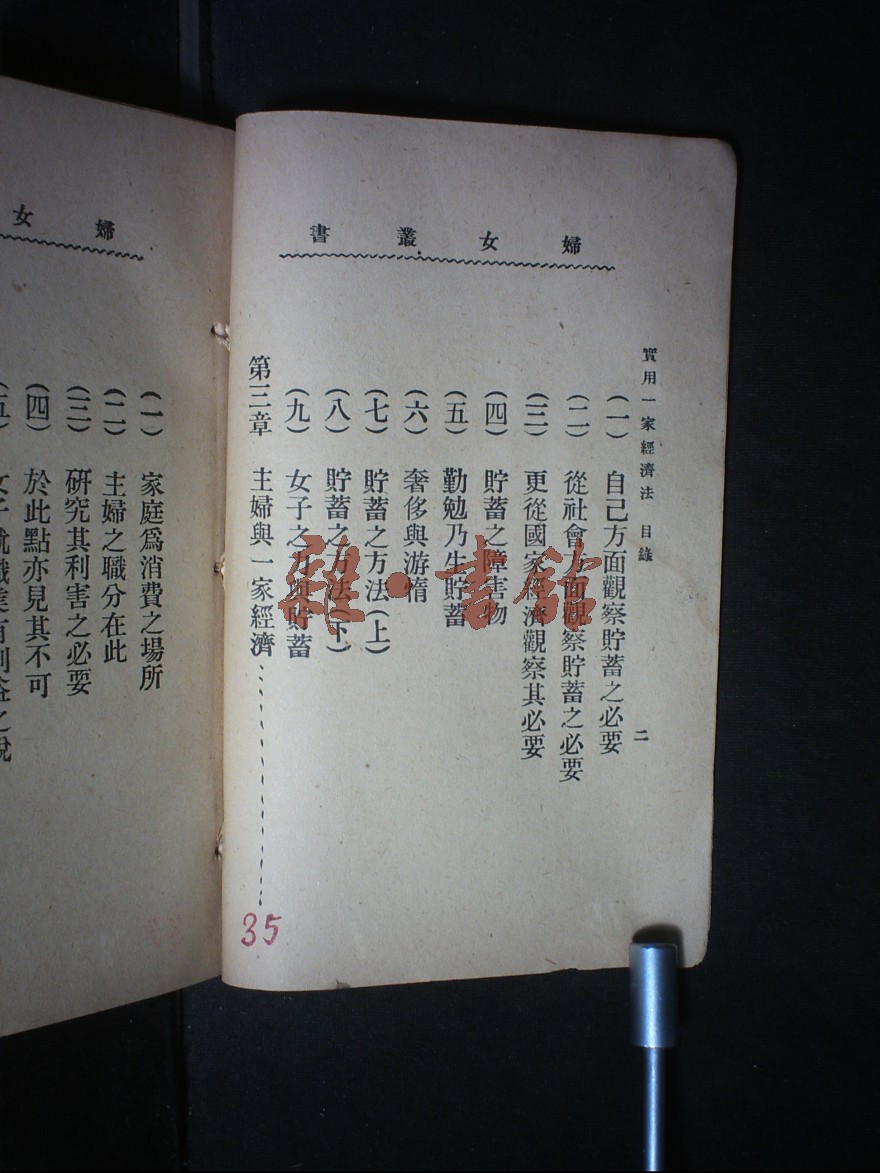 婦女叢書
實用一家經濟法 目錄 二
(一) 自己方面觀察貯蓄之必要
(二) 從社會方面觀察貯蓄之必要
(三) 更從國家經濟觀察其必要
(四) 貯蓄之障害物
(五) 勤勉乃生貯蓄
(六) 奢侈與游惰
(七) 貯蓄之方法(上)
(八) 貯蓄之方法(下)
(九) 女子之力與貯蓄
第三章 主婦與一家經濟
35
雜·書館
婦女
(一) 家庭爲消費之場所
(二) 主婦之職分在此
(三) 研究其利害之必要
(四) 於此點亦見其不可
(五) 女子就職業有利益之說